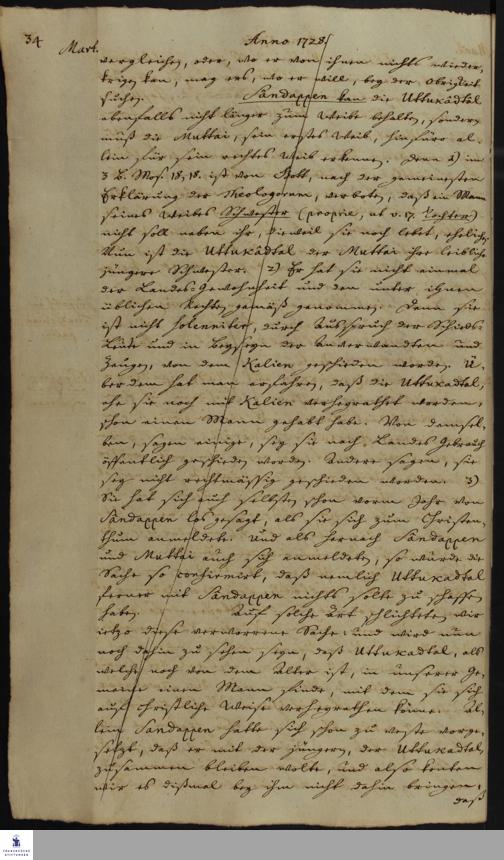 34
Mart. Anno 1728
vergleichen, oder, wo er von ihnen nichts wieder
kriegen kan, mag ers, wo er will, bey der Obrigkeit
suchen. Sandappen kan die Uttukádtal
ebenfalls nicht länger zum Weibe behalten, sondern
muß die Muttai, sein erstes Weib, hinfüro al-
lein für sein rechtes Weib erkennen. Denn 1) im
3 B. Mos. 18, 18. ist von Gott, nach der gemeinesten
Erklärung der Theologorum, verboten, daß ein Mann
seines Weibes Schwester (proprie, ut v. 17. Tochter)
nicht soll neben ihr, dieweil sie noch lebet, ehelichen.
Nun ist die Uttukádtal der Muttai ihre leibliche
jüngere Schwester. 2) Er hat sie nicht einmal
der Landes-Gewohnheit und den unter ihnen
üblichen Rechten gemäß genommen. Denn sie
ist nicht solenniter, durch Ausspruch der Schieds-
Leute und im Beyseyn der Anverwandten und
Zeugen, von dem Kalien geschieden worden. Ü-
berdem hat man erfahren, daß die Uttukadtal,
ehe sie noch mit Kalien verheyrathet worden,
schon einen Mann gehabt habe. Von demsel-
ben, sagen einige, sey sie nach Landes Gebrauch
öffentlich geschieden worden. Andere sagen, sie
sey nicht rechtmässig geschieden worden. 3)
Sie hat sich auch selbsten schon vorm Jahr von
Sandappen los gesagt, als sie sich zum Christen-
thum anmeldete. Und als hernach Sandappen
und Muttai auch sich anmeldeten, so wurde die
Sache so confirmirt, daß nemlich Uttukadtal
ferner mit Sandappen nichts solte zu schaffen
haben. Auf solche Art schlichteten wir
ietzo diese verworrene Sache: und wird nun
noch dahin zu sehen seyn, daß Uttukadtal, als
welche noch von dem Alter ist, in unserer Ge-
meine einen Mann finde, mit dem sie sich
auf christliche Weise verheyrathen könne. Al-
lein Sandappen hatte sich schon zu veste vorge-
setzt, daß er mit der jüngern, der Uttukadtal,
zusammen bleiben wolte, und also konten
wir es dißmal bey ihm nicht dahin bringen,
daß
FRANCKESCHE
STIFTUNGEN